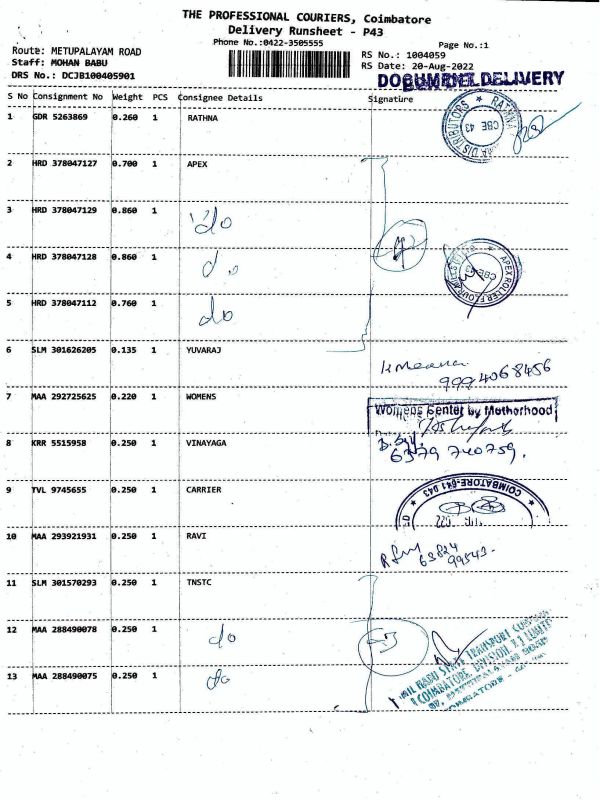 THE PROFESSIONAL COURIERS, Coimbatore
Delivery Runsheet - P43
Phone No.:0422-3505555
Page No.:1
Route: METUPALAYAM ROAD
RS No.: 1004059
Staff: MOHAN BABU
RS Date: 20-Aug-2022
DRS No.: DCJB100405901
DOCUMENT DELIVERY
S No Consignment No Weight PCS Consignee Details Signature
1 GDR 5263869 0.260 1 RATHNA
RATHNA DISTRIBUTORS CBE 43
2 HRD 378047127 0.700 1 APEX
3 HRD 378047129 0.860 1 do
4 HRD 378047128 0.860 1 do
APEX ROLLER FLOUR MILLS CBE-43
5 HRD 378047112 0.760 1 do
6 SLM 301626205 0.135 1 YUVARAJ
9994068456
7 MAA 292725625 0.220 1 WOMENS
Womens Center by Motherhood
8 KRR 5515958 0.250 1 VINAYAGA
6379 740759.
9 TVL 9745655 0.250 1 CARRIER
COIMBATORE-641 043
10 MAA 293921931 0.250 1 RAVI
63824
99543.
11 SLM 301570293 0.250 1 TNSTC
12 MAA 288490078 0.250 1 do
TAMIL NADU STATE TRANSPORT
(COIMBATORE DIVISION
13 MAA 288490075 0.250 1 do